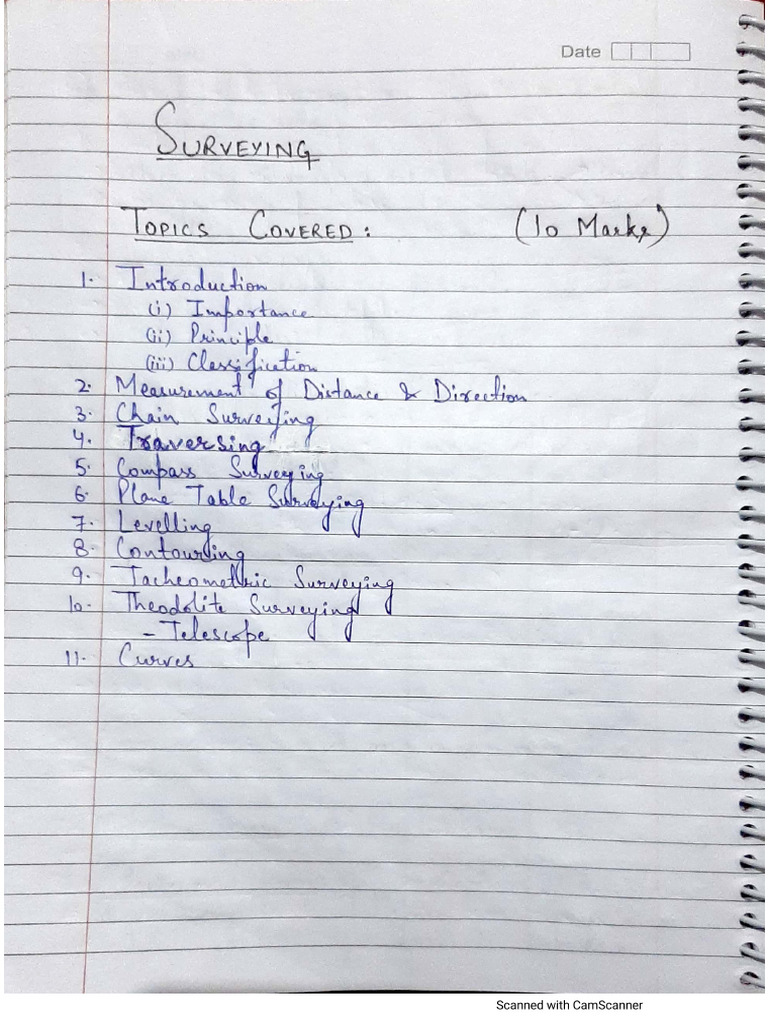 Date
SURVEYING
TOPICS COVERED: (10 Marks)
1. Introduction
(i) Importance
(ii) Principle
(iii) Classification
2. Measurement of Distance & Direction
3. Chain Surveying
4. Traversing
5. Compass Surveying
6. Plane Table Surveying
7. Levelling
8. Contouring
9. Tacheometric Surveying
10. Theodolite Surveying
- Telescope
11. Curves
Scanned with CamScanner